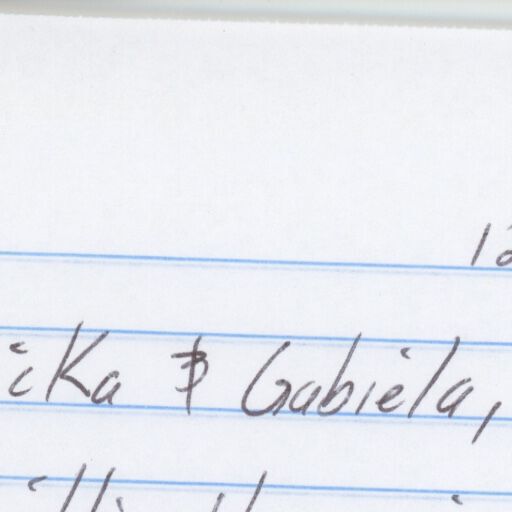 12
ika & Gabiela,